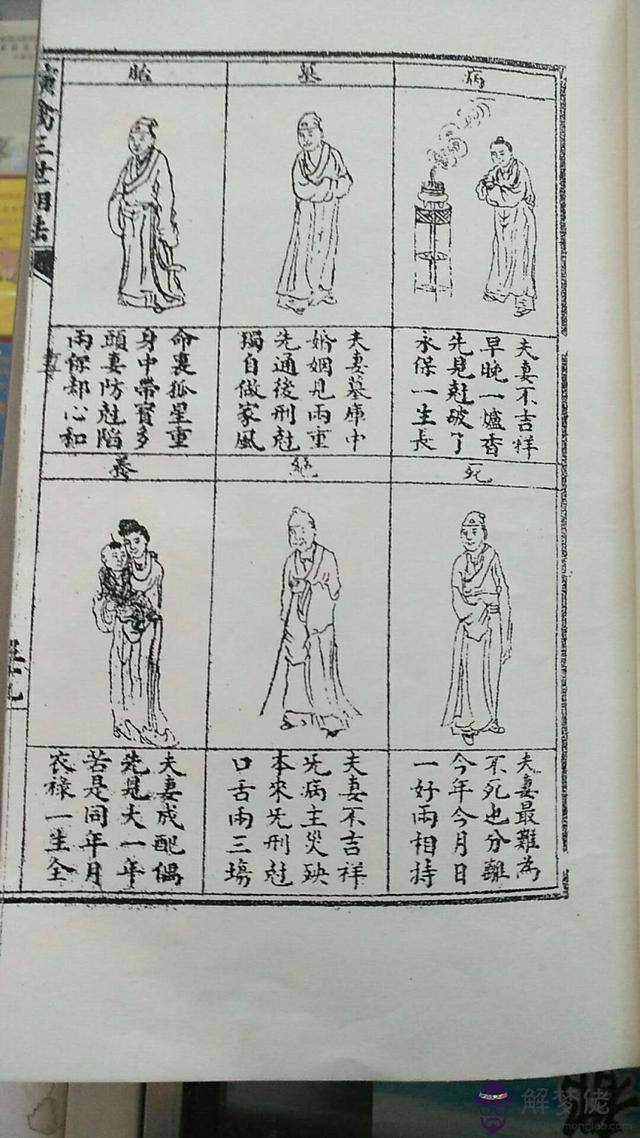 演禽三世相法
病
夫妻不吉祥
早晚一爐香
先見尅破了
永保一生長
墓
夫妻墓庫中
婚姻見兩重
先通後刑尅
獨自做家風
胎
命裏孤星重
身中帶寶多
頭妻防尅陷
兩保却心和
死
夫妻最難為
不死也分離
今年今月日
一好兩相持
絕
夫妻不吉祥
旡病主災殃
本來旡刑尅
口舌兩三塲
養
夫妻成配偶
先是夫一年
苦是同年月
衣祿一生全
解梦佬